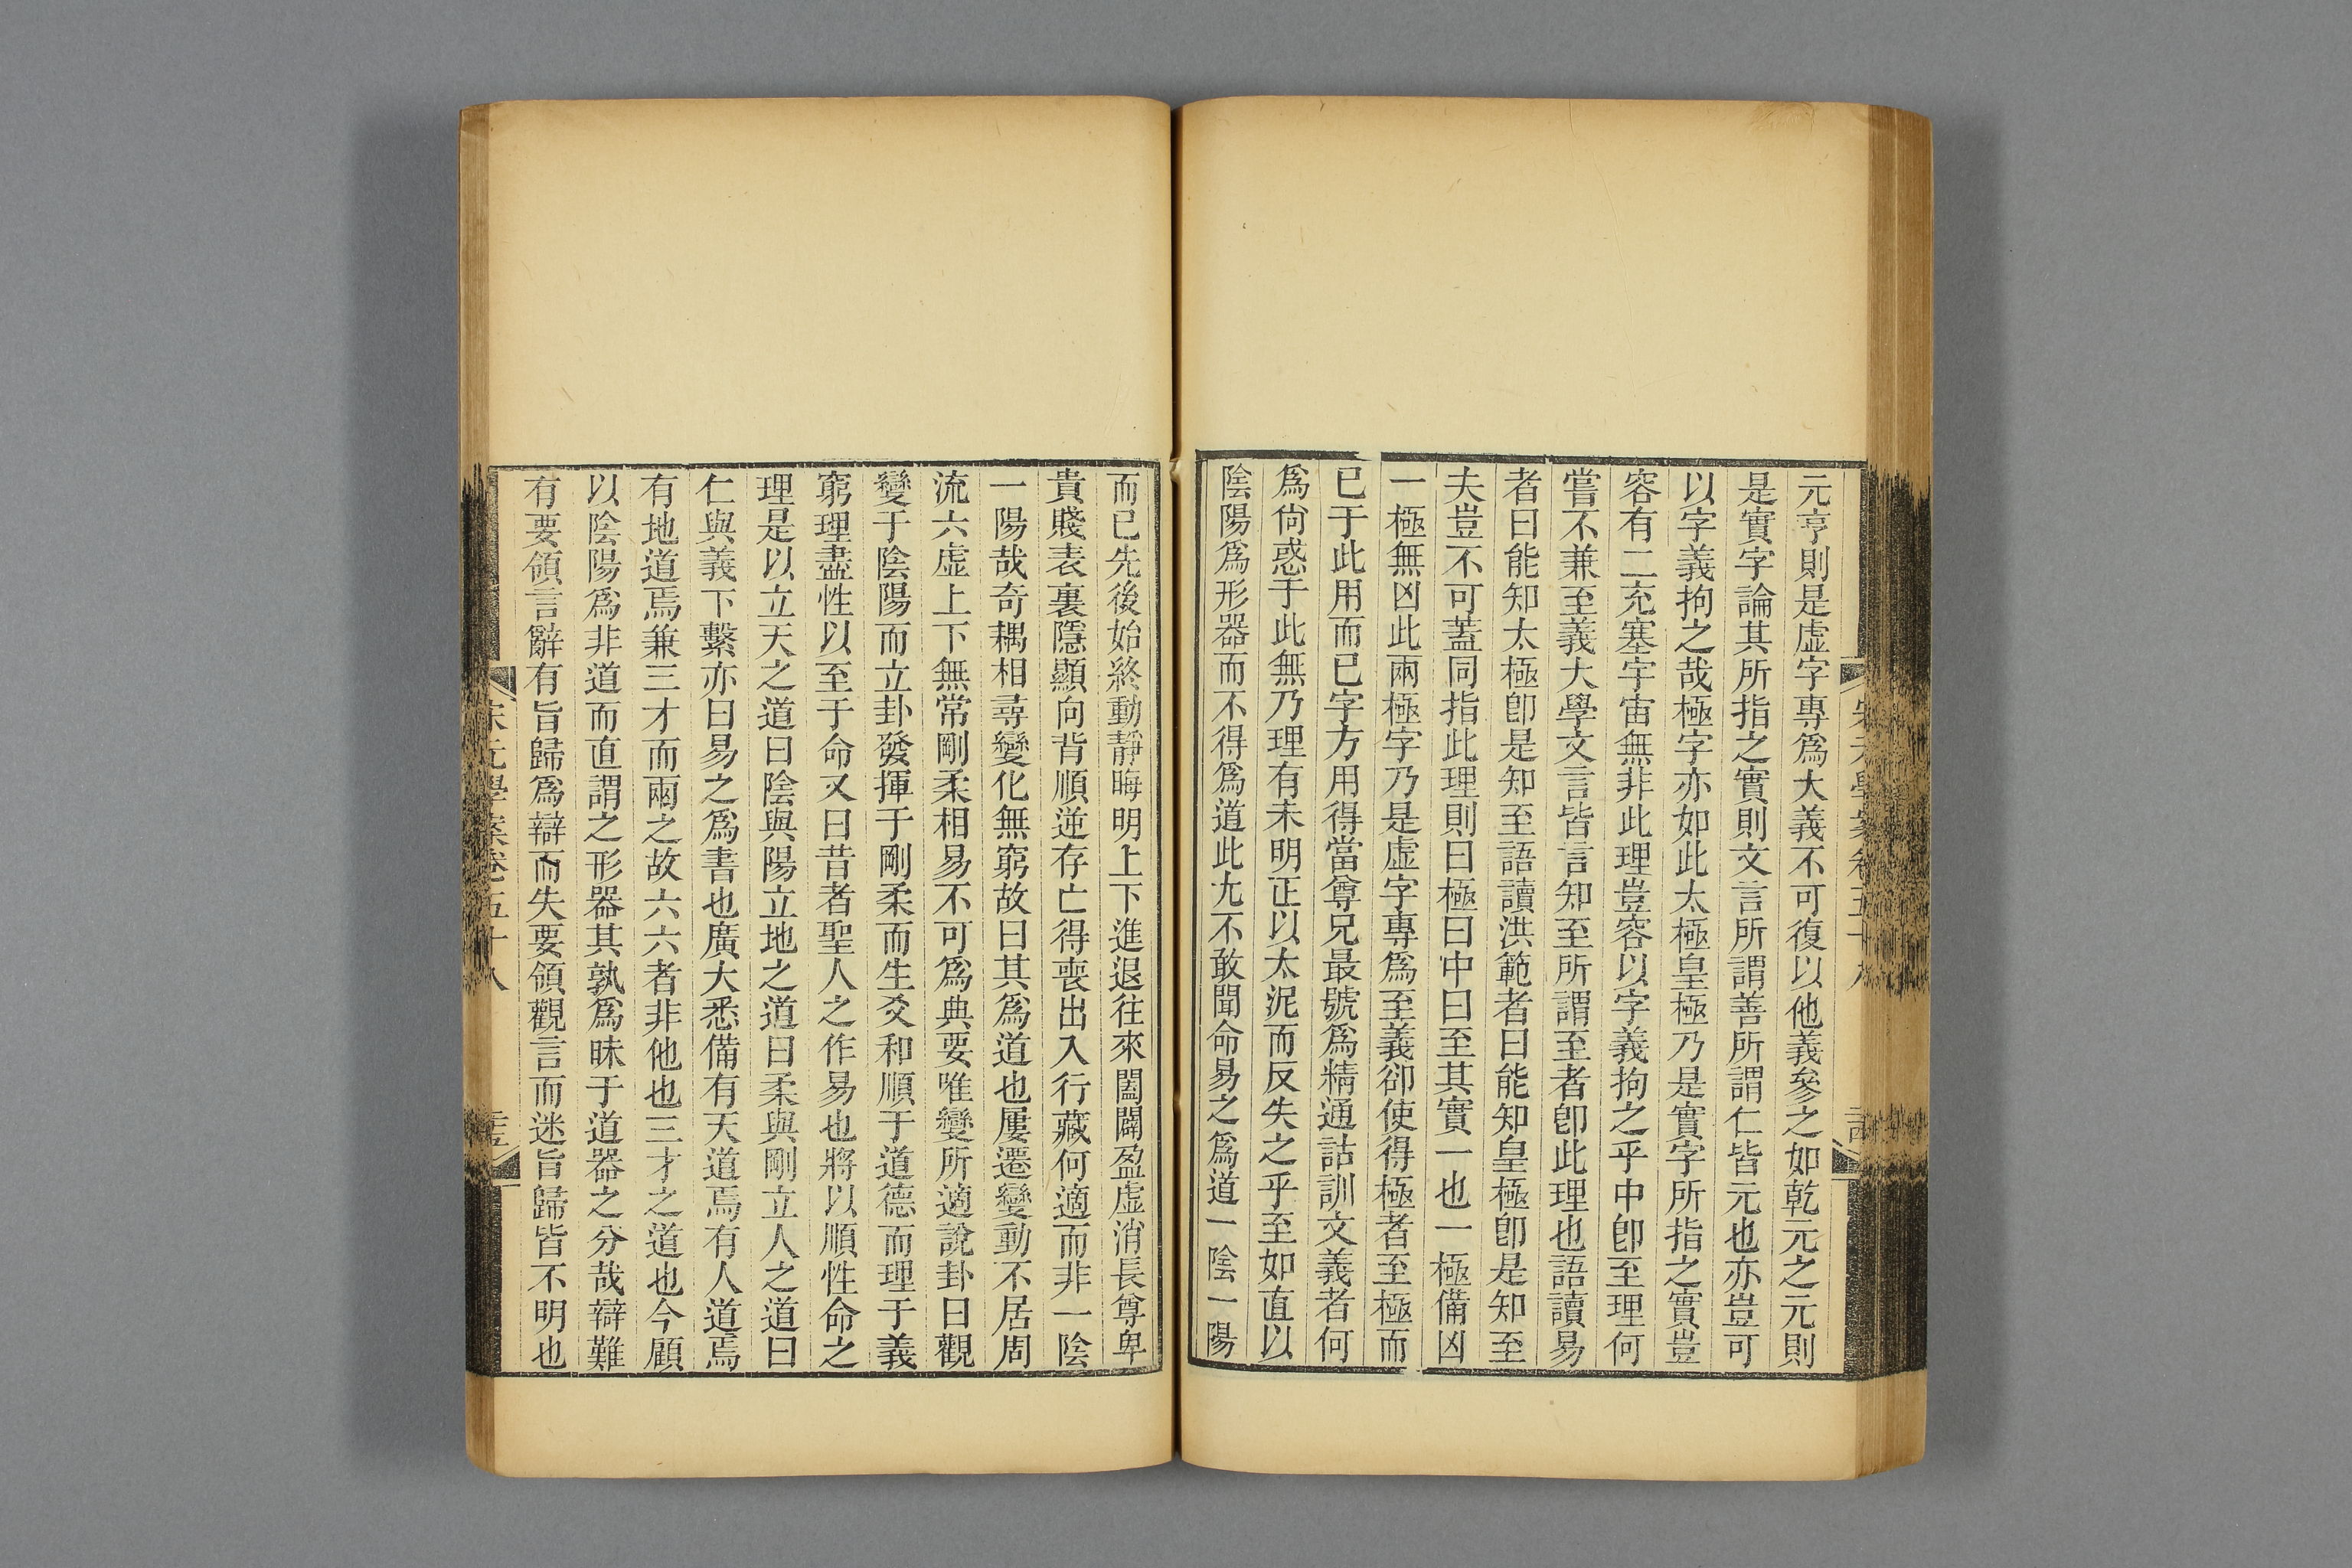 元亨則是虛字專爲大義不可復以他義參之如乾元之元則
是實字論其所指之實則文言所謂善所謂仁皆元也亦豈可
以字義拘之哉極字亦如此太極皇極乃是實字所指之實豈
容有二充塞宇宙無非此理豈容以字義拘之乎中卽至理何
嘗不兼至義大學文言皆言知至所謂至者卽此理也語讀易
者曰能知太極卽是知至語讀洪範者曰能知皇極卽是知至
夫豈不可蓋同指此理則曰極曰中曰至其實一也一極備凶
一極無凶此兩極字乃是虛字專爲至義卻使得極者至極而
已于此用而已字方用得當尊兄最號爲精通詁訓文義者何
爲尙惑于此無乃理有未明正以太泥而反失之乎至如直以
陰陽爲形器而不得爲道此尢不敢聞命易之爲道一陰一陽
而已先後始終動靜晦明上下進退往來闔闢盈虛消長尊卑
貴賤表裏隱顯向背順逆存亡得喪出入行藏何適而非一陰
一陽哉奇耦相尋變化無窮故曰其爲道也屢遷變動不居周
流六虛上下無常剛柔相易不可爲典要唯變所適說卦曰觀
變于陰陽而立卦發揮于剛柔而生爻和順于道德而理于義
窮理盡性以至于命又曰昔者聖人之作易也將以順性命之
理是以立天之道曰陰與陽立地之道曰柔與剛立人之道曰
仁與義下繫亦曰易之爲書也廣大悉備有天道焉有人道焉
有地道焉兼三才而兩之故六六者非他也三才之道也今顧
以陰陽爲非道而直謂之形器其孰爲昧于道器之分哉辯難
有要領言辭有旨歸爲辯而失要領觀言而迷旨歸皆不明也
宋元學案卷五十八